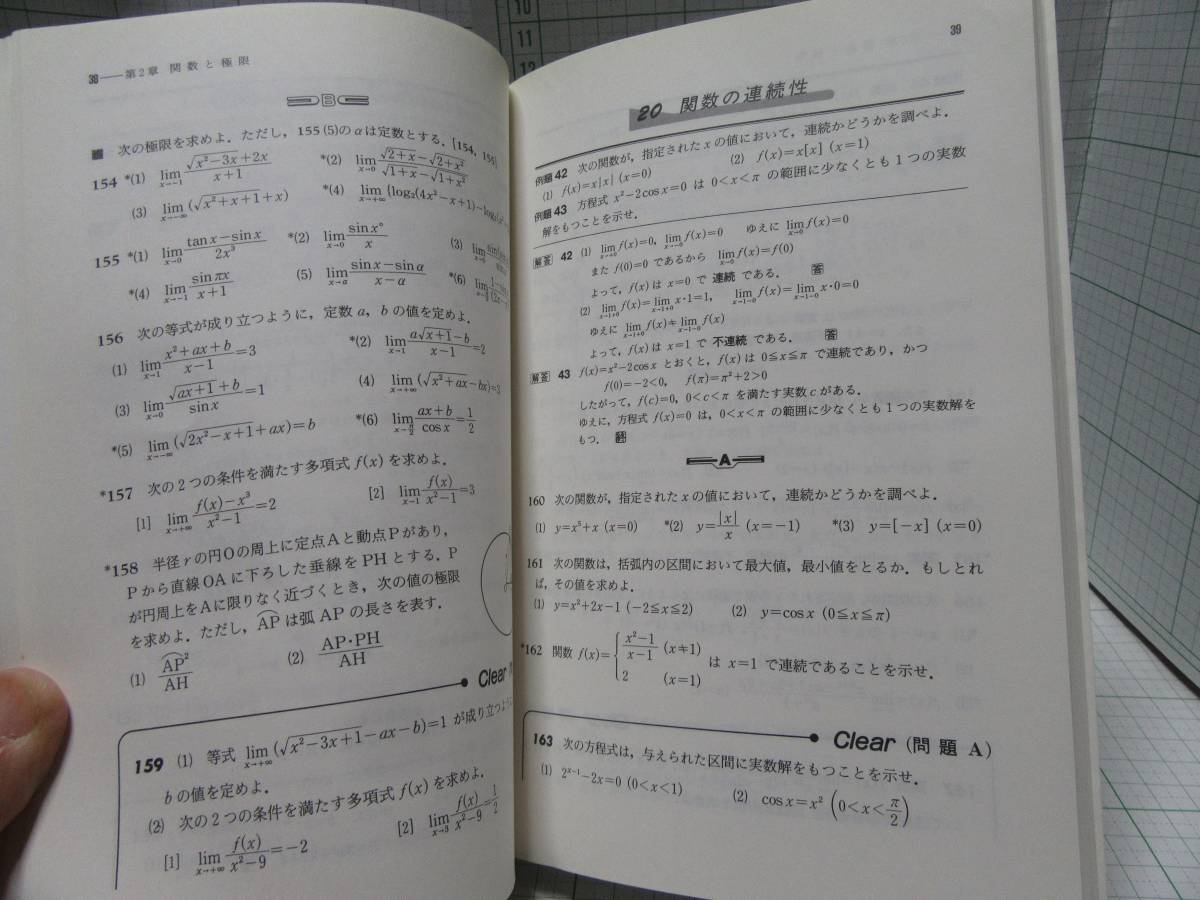 38 第2章 関数と極限
B
■ 次の極限を求めよ．ただし，155 (5)のαは定数とする．[154, 155]
154 *(1) lim x→-1 (√(x²-3x)+2x)/(x+1) *(2) lim x→0 (√(2+x)-√(2+x²))/(√(1+x)-√(1+x²))
(3) lim x→-∞ (√(x²+x+1)+x) *(4) lim x→+∞ {log₂(4x²-x+1)-
155 *(1) lim x→0 (tan x-sin x)/(2x³) *(2) lim x→0 (sin x°)/x (3) lim x→0
*(4) lim x→-1 (sin πx)/(x+1) (5) lim x→α (sin x-sin α)/(x-α) *(6)
156 次の等式が成り立つように，定数 a，b の値を定めよ．
(1) lim x→1 (x²+ax+b)/(x-1)=3 *(2) lim x→1 (a√(x+1)-b)/(x-1)=2
(3) lim x→0 (√(ax+1)+b)/(sin x)=1 (4) lim x→+∞ (√(x²+ax)-bx)=3
*(5) lim x→-∞ (√(2x²-x+1)+ax)=b *(6) lim x→π/2 (ax+b)/(cos x)=1/2
*157 次の2つの条件を満たす多項式 f(x) を求めよ．
[1] lim x→+∞ (f(x)-x³)/(x²-1)=2 [2] lim x→1 f(x)/(x²-1)=3
*158 半径 r の円Oの周上に定点Aと動点Pがあり，
Pから直線OAに下ろした垂線をPHとする．P
が円周上をAに限りなく近づくとき，次の値の極限
を求めよ．ただし，⌒APは弧 AP の長さを表す．
(1) ⌒AP²/AH (2) AP・PH/AH
Clear
159 (1) 等式 lim x→+∞ (√(x²-3x+1)-ax-b)=1 が成り立つよう
bの値を定めよ．
(2) 次の2つの条件を満たす多項式 f(x) を求めよ．
[1] lim x→+∞ f(x)/(x²-9)=-2 [2] lim x→3 f(x)/(x²-9)=1/2
10
11
12
39
20 関数の連続性
例題 42 次の関数が，指定された x の値において，連続かどうかを調べよ．
(1) f(x)=x|x| (x=0) (2) f(x)=x[x] (x=1)
例題 43 方程式 x²-2cos x=0 は 0<x<π の範囲に少なくとも1つの実数
解をもつことを示せ．
解答 42 (1) lim x→+0 f(x)=0, lim x→-0 f(x)=0 ゆえに lim x→0 f(x)=0
また f(0)=0 であるから lim x→0 f(x)=f(0)
よって，f(x) は x=0 で 連続 である． 答
(2) lim x→1+0 f(x)=lim x→1+0 x・1=1, lim x→1-0 f(x)=lim x→1-0 x・0=0
ゆえに lim x→1+0 f(x)≠lim x→1-0 f(x)
よって，f(x) は x=1 で 不連続 である． 答
解答 43 f(x)=x²-2cos x とおくと，f(x) は 0≦x≦π で連続であり，かつ
f(0)=-2<0, f(π)=π²+2>0
したがって，f(c)=0, 0<c<π を満たす実数 c がある．
ゆえに，方程式 f(x)=0 は，0<x<π の範囲に少なくとも1つの実数解を
もつ． 終
A
160 次の関数が，指定された x の値において，連続かどうかを調べよ．
(1) y=x³+x (x=0) *(2) y=|x|/x (x=-1) *(3) y=[-x] (x=0)
161 次の関数は，括弧内の区間において最大値，最小値をとるか．もしとれ
ば，その値を求めよ．
(1) y=x²+2x-1 (-2≦x≦2) (2) y=cos x (0≦x≦π)
*162 関数 f(x)={ (x²-1)/(x-1) (x≠1) は x=1 で連続であることを示せ．
2 (x=1)
Clear (問題 A)
163 次の方程式は，与えられた区間に実数解をもつことを示せ．
(1) 2ˣ⁻¹-2x=0 (0<x<1) (2) cos x=x² (0<x<π/2)